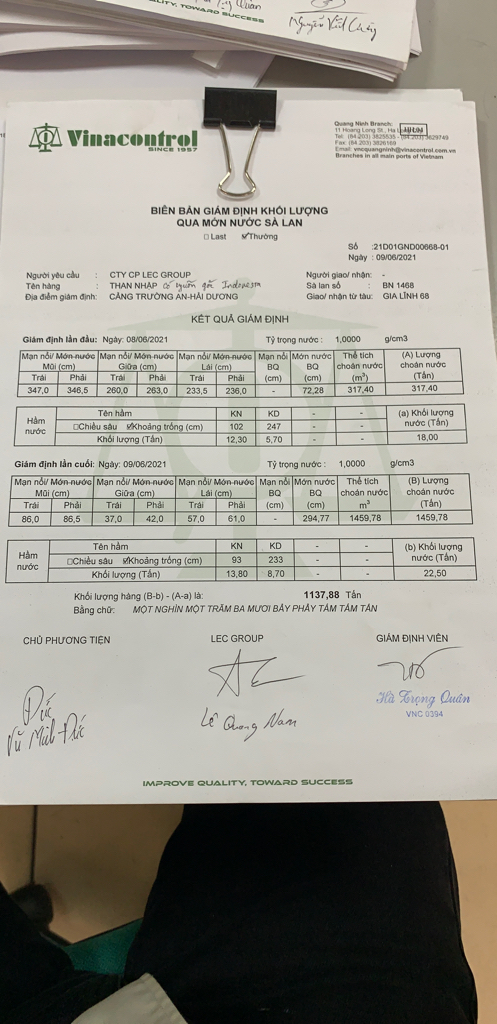 ITY, TOWARD SUCCESS
Nguyễn Viết Chây
Vinacontrol
SINCE 1957
Quang Ninh Branch:
11 Hoang Long St., Ha
Tel: (84.203) 3825535 - (84.203) 3629749
Fax: (84.203) 3826169
Email: vncquangninh@vinacontrol.com.vn
Branches in all main ports of Vietnam
BIÊN BẢN GIÁM ĐỊNH KHỐI LƯỢNG
QUA MỚN NƯỚC SÀ LAN
Last Thường
Số :21D01GND00668-01
Ngày : 09/06/2021
Người yêu cầu : CTY CP LEC GROUP Người giao/ nhận: -
Tên hàng : THAN NHẬP có nguồn gốc Indonesia Sà lan số : BN 1468
Địa điểm giám định: CẢNG TRƯỜNG AN-HẢI DƯƠNG Giao/ nhận từ tàu: GIA LĨNH 68
KẾT QUẢ GIÁM ĐỊNH
Giám định lần đầu: Ngày: 08/06/2021 Tỷ trọng nước : 1,0000 g/cm3
Mạn nổi/ Mớn nước Mạn nổi/ Mớn nước Mạn nổi/ Mớn nước Mạn nổi Mớn nước Thể tích (A) Lượng
Mũi (cm) Giữa (cm) Lái (cm) BQ BQ choán nước choán nước
Trái Phải Trái Phải Trái Phải (cm) (cm) (m³) (Tấn)
347,0 346,5 260,0 263,0 233,5 236,0 - 72,28 317,40 317,40
Hầm nước Tên hầm KN KD - - (a) Khối lượng nước (Tấn)
Chiều sâu Khoảng trống (cm) 102 247 - -
Khối lượng (Tấn) 12,30 5,70 - - 18,00
Giám định lần cuối: Ngày: 09/06/2021 Tỷ trọng nước : 1,0000 g/cm3
Mạn nổi/ Mớn nước Mạn nổi/ Mớn nước Mạn nổi/ Mớn nước Mạn nổi Mớn nước Thể tích (B) Lượng
Mũi (cm) Giữa (cm) Lái (cm) BQ BQ choán nước choán nước
Trái Phải Trái Phải Trái Phải (cm) (cm) m³ (Tấn)
86,0 86,5 37,0 42,0 57,0 61,0 - 294,77 1459,78 1459,78
Hầm nước Tên hầm KN KD - - (b) Khối lượng nước (Tấn)
Chiều sâu Khoảng trống (cm) 93 233 - -
Khối lượng (Tấn) 13,80 8,70 - - 22,50
Khối lượng hàng (B-b) - (A-a) là: 1137,88 Tấn
Bằng chữ: MỘT NGHÌN MỘT TRĂM BA MƯƠI BẢY PHẨY TÁM TÁM TẤN
CHỦ PHƯƠNG TIỆN LEC GROUP GIÁM ĐỊNH VIÊN
Đức
Vũ Minh Đức
Lê Quang Nam
Hà Trọng Quân
VNC 0394
IMPROVE QUALITY, TOWARD SUCCESS